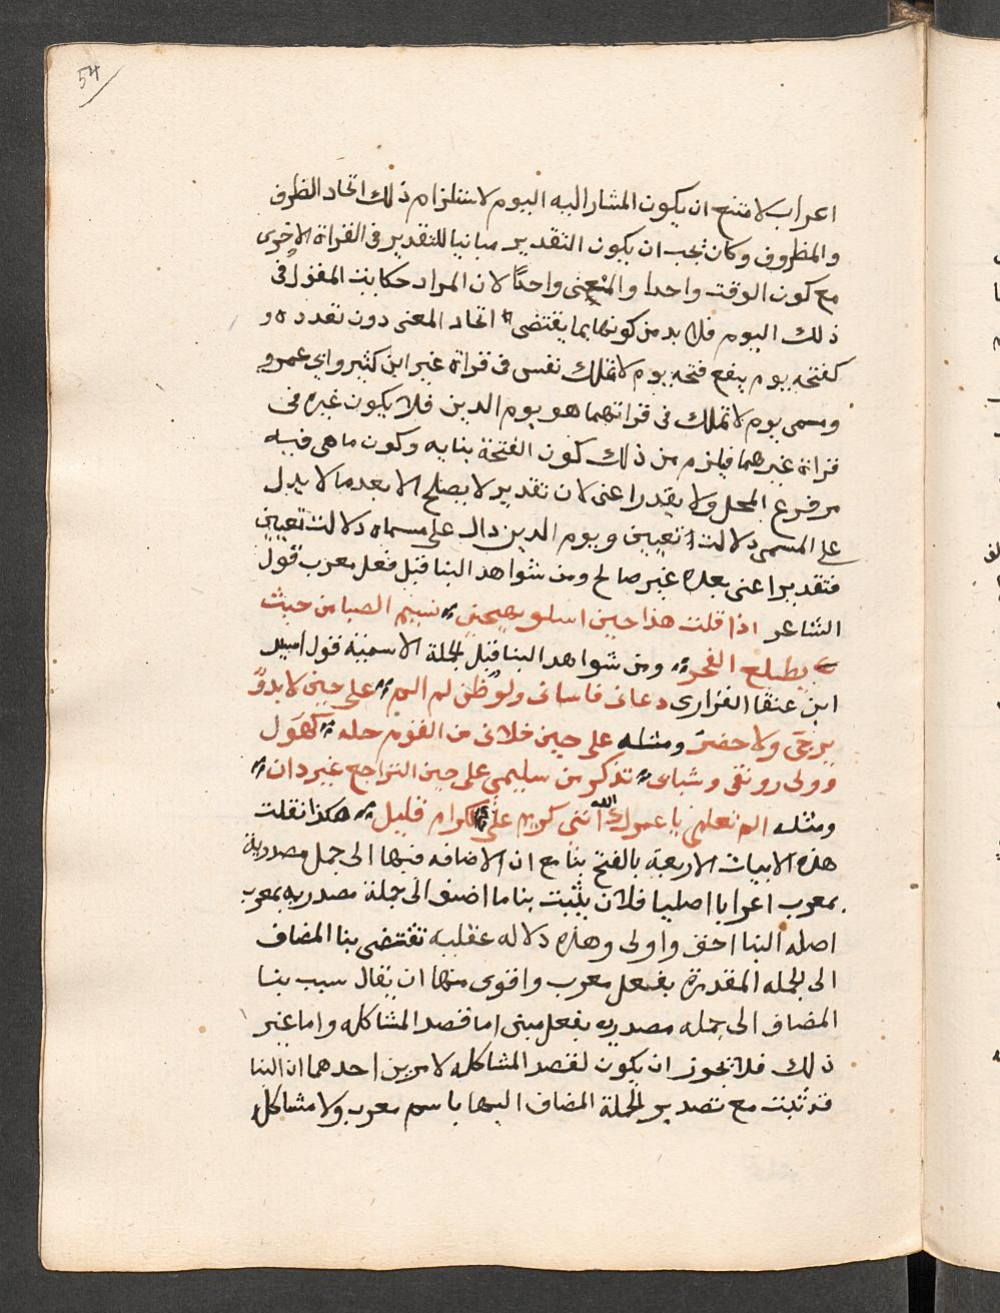 54
اعراب لامتنع ان يكون المشار اليه اليوم لاستلزام ذلك اتحاد الظرف
والمظروف وكان يجب ان يكون التقدير مباينا للتقدير فى القراة الاخرى
مع كون الوقت واحدا والمعنى واحدًا لان المراد حكاية المقول فى
ذلك اليوم فلا بد من كونها بما يقتضى اتحاد المعنى دون تعدده و
كفتحه يوم ينفع فتحه يوم لا تملك نفس فى قراة غير ابن كثير وابي عمرو
ومسمى يوم لا تملك فى قراتهما هو يوم الدين فلا يكون غيره فى
قراة غيرهما فيلزم من ذلك كون الفتحة بنايه وكون ما هى فيه
مرفوع المحل ولا يقدر اعنى لان تقدير لا يصلح الا بعد ما لا يدل
على المسمى دلالة تعيين ويوم الدين دال على مسماه دلالة تعيين
فتقدير اعنى بعده غير صالح ومن شواهد البنا قبل فعل معرب قول
الشاعر اذا قلت هذا حين اسلو يهيجنى نسيم الصبا من حيث
يطلع الفجر ومن شواهد البنا قبل الجملة الاسمية قول اسيد
ابن عنقا الفزارى دعانى فاسانى ولو ظن لم الم على حين لا بدوٌ
يرجى ولا حضر ومثله على حين خلانى من القوم جله كهول
وولى رونقى وشبابى تذكر من سليمى على حين التراجع غير دان
ومثله الم تعلمى يا عمرك الله اننى كريم على حين الكرام قليل هكذا نقلت
هذه الابيات الاربعة بالفتح بنا مع ان الاضافه فيها الى جمل مصدرية
بمعرب اعرابا اصليا فلان يثبت بنا ما اضيف الى جملة مصدريه بمعرب
اصله البنا احق واولى وهذه دلاله عقليه تقتضى بنا المضاف
الى الجمله المقدرة بفعل معرب واقوى منها ان يقال سبب بنا
المضاف الى جمله مصدريه بفعل مبنى اما قصد المشاكله واما غير
ذلك فلا يجوز ان يكون لقصد المشاكله لامرين احدهما ان البنا
قد ثبت مع تصدير الجملة المضاف اليها باسم معرب ولا مشاكله